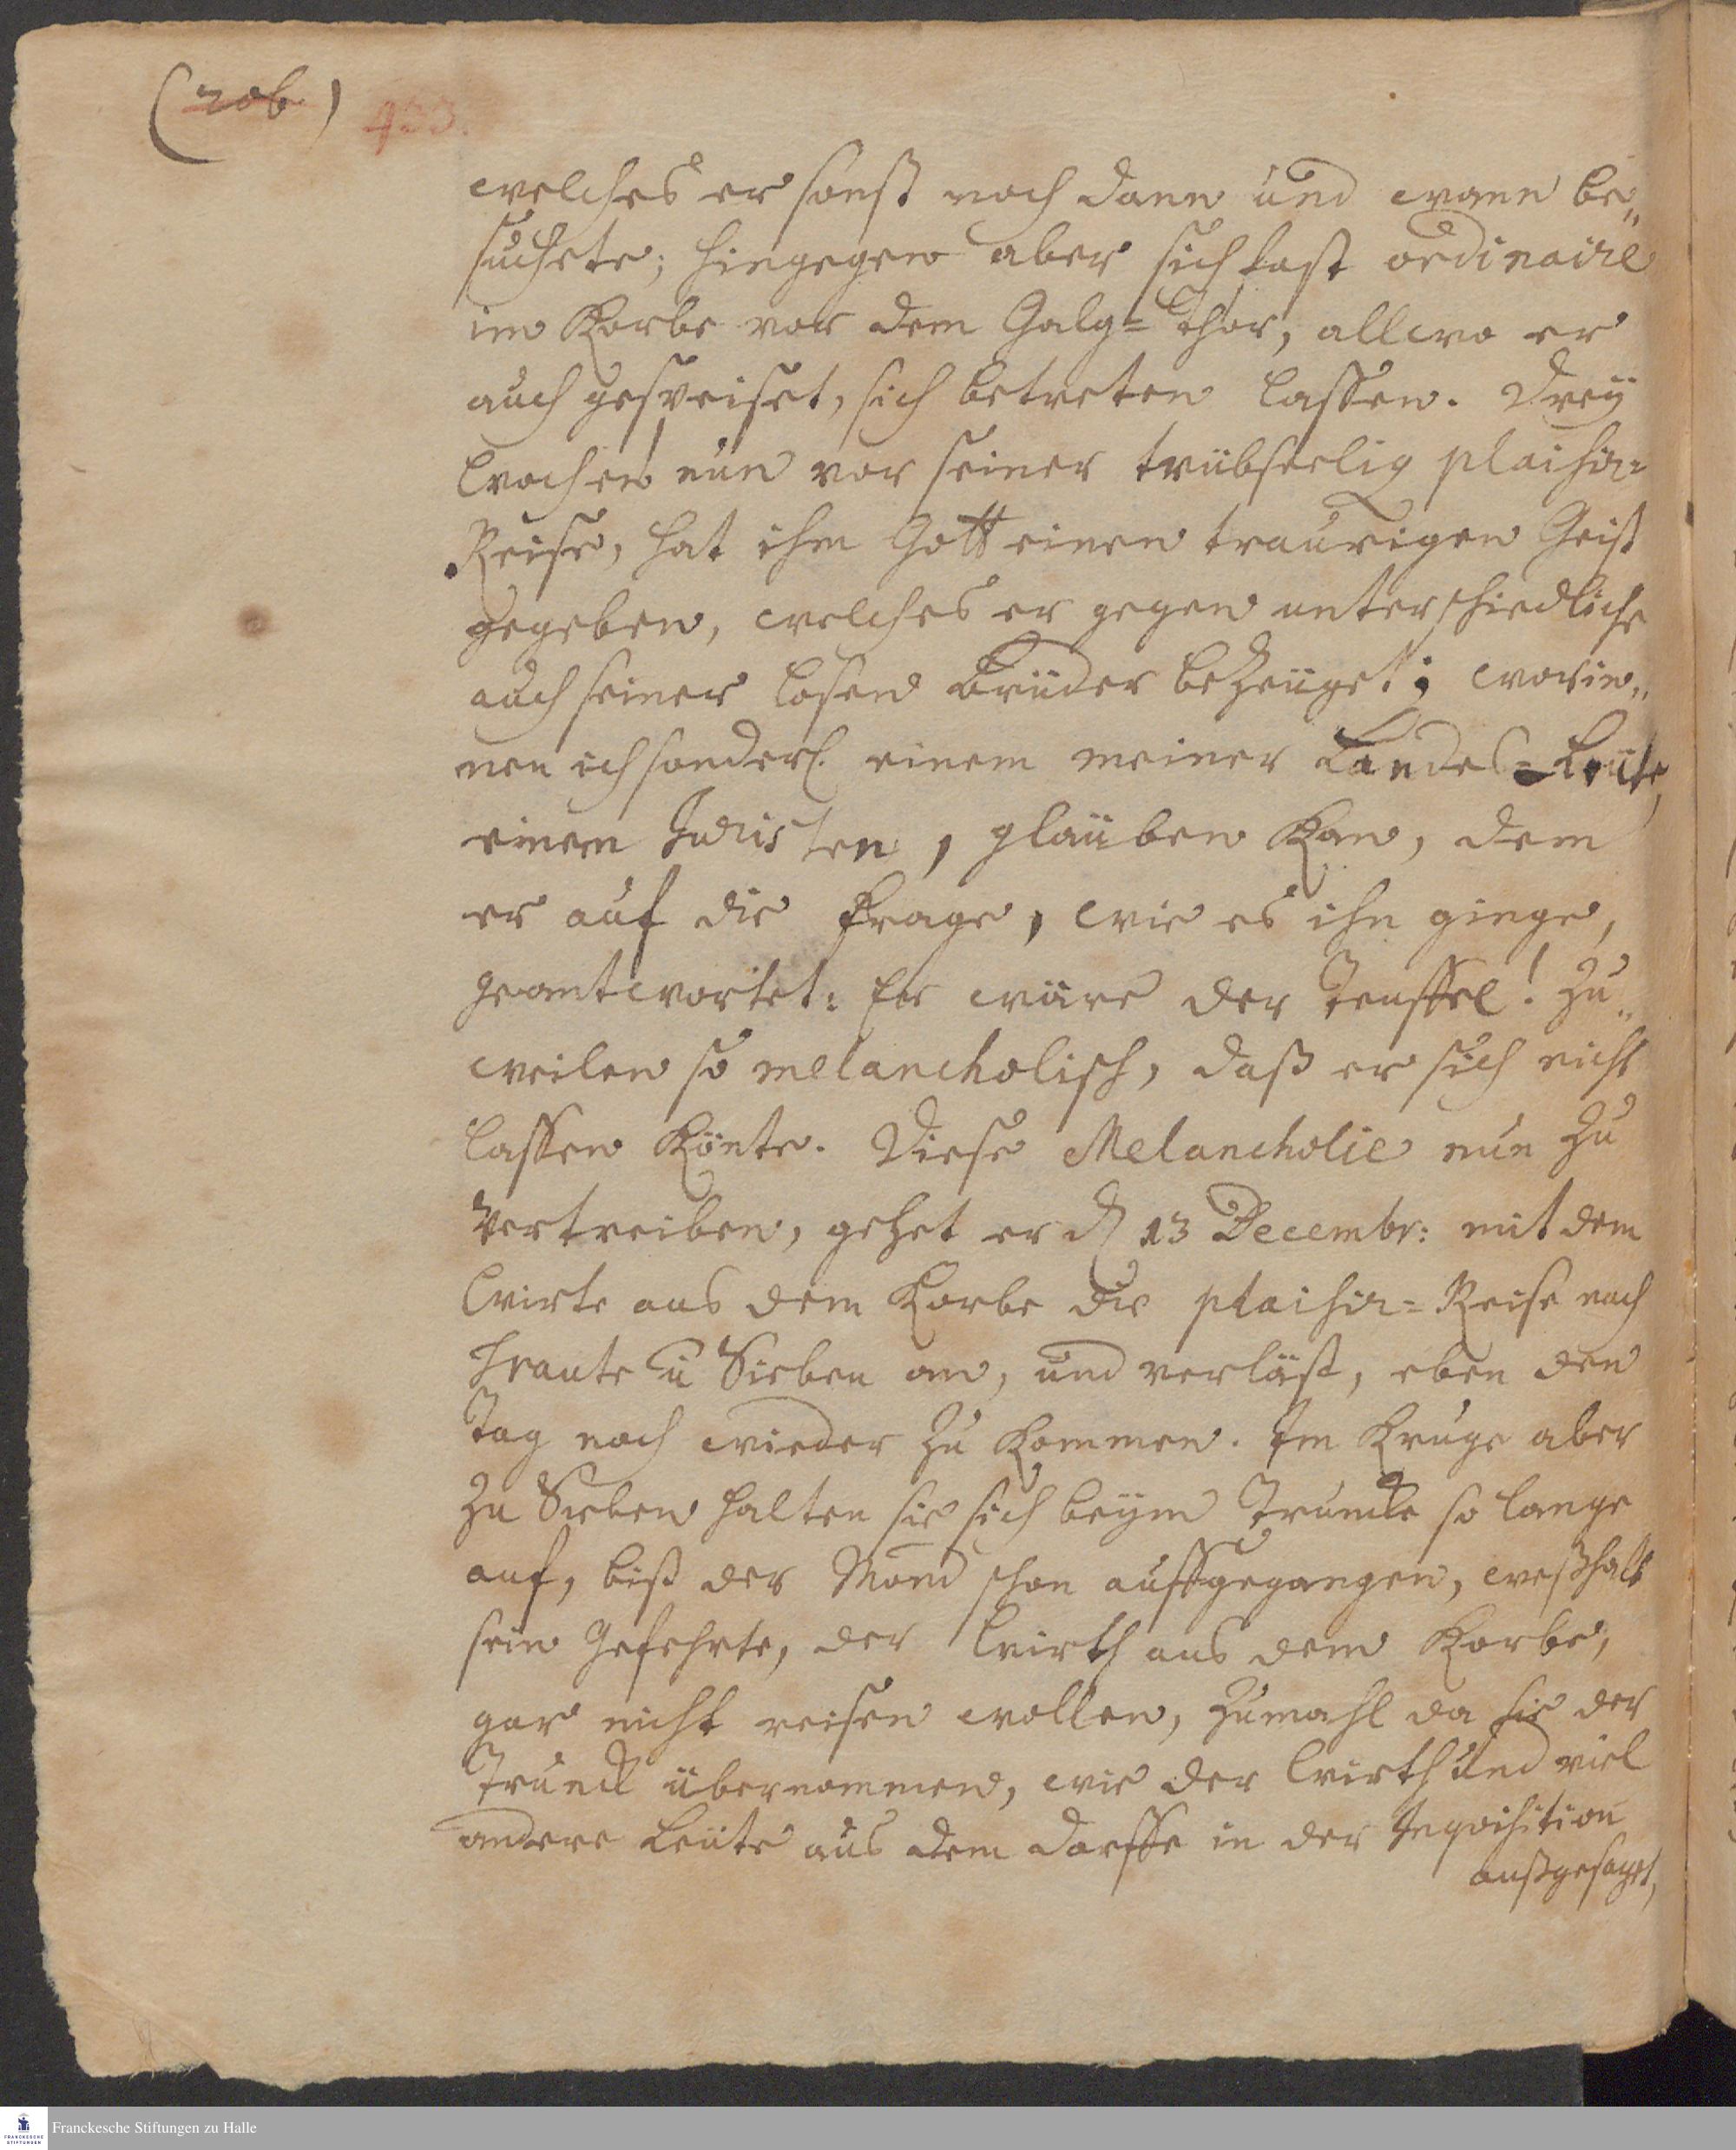 (206) 433.
welches er sonst noch dann und wann be„
suchete; hingegen aber sich fast ordinaire
im Korbe vor dem Galg=Thor, allwo er
auch gespeiset, sich betreten lassen. Drey
Wochen nun vor seiner trübseelig plaisir=
Reise, hat ihm Gott einen traurigen Geist
gegeben, welches er gegen unterschiedliche
auch seiner losen Brüder bezeüget; worin„
nen ich sonderl. einem meiner Landes=Leüte,
einem Juristen, glaüben kan, dem
er auf die Frage, wie es ihm ginge,
geantwortet: Er wäre der Teuffel! zu„
weilen so melancholisch, daß er sich nicht
lassen könte. Diese Melancholie nun zu
vertreiben, gehet er d. 13 Decembr: mit dem
Wirte aus dem Korbe die plaisir=Reise nach
Traute u Sieben an, und verläst, eben den
Tag noch wieder zu kommen. Im Kruge aber
zu Sieben halten sie sich beym Truncke so lange
auf, biß der Mond schon auffgegangen, weßhalb
sein Gefehrte, der Wirth aus dem Korbe,
gar nicht reisen wollen, zumahl da sie der
Trunck übernommen, wie der Wirth und viel
andere Leüte aus dem Dorffe in der Inquisition
außgesaget,
Franckesche Stiftungen zu Halle